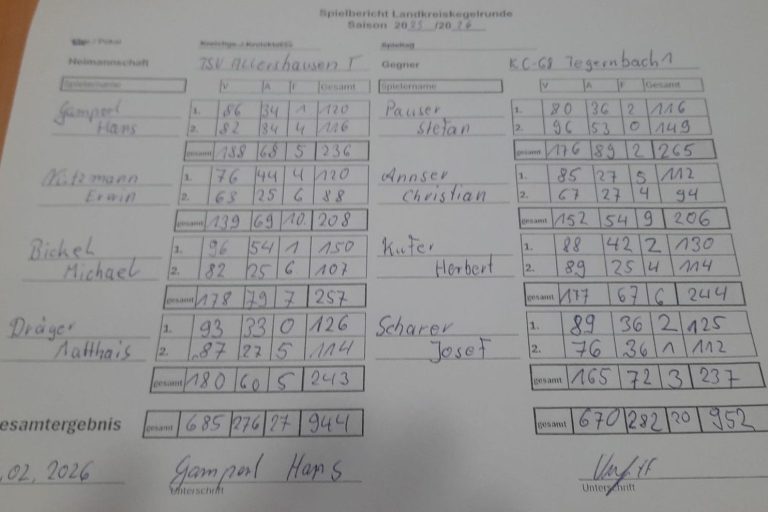 Spielbericht Landkreiskegelrunde
Saison 2025/2026
Heimmannschaft TSV Allershausen I Gegner KC-68 Tegernbach 1
Spielername V A F Gesamt Spielername V A F Gesamt
Gamperl 1. 86 34 1 120 Pauser 1. 80 36 2 116
Hans 2. 82 34 4 116 Stefan 2. 96 53 0 149
gesamt 68 5 236 gesamt 176 89 2 265
1. 76 44 4 120 Annser 1. 85 27 5 112
Erwin 2. 63 25 6 88 Christian 2. 67 27 4 94
gesamt 139 69 10 208 gesamt 152 54 9 206
Bickel 1. 96 54 1 150 Kufer 1. 88 42 2 130
Michael 2. 82 25 6 107 Herbert 2. 89 25 4 114
gesamt 178 79 7 257 gesamt 177 67 6 244
Dräger 1. 93 33 0 126 Scharer 1. 89 36 2 125
Matthais 2. 87 27 5 114 Josef 2. 76 36 1 112
gesamt 180 60 5 243 gesamt 165 72 3 237
esamtergebnis gesamt 685 276 27 944 gesamt 670 282 20 952
.02.2026 Gamperl Hans
Unterschrift Unterschrift